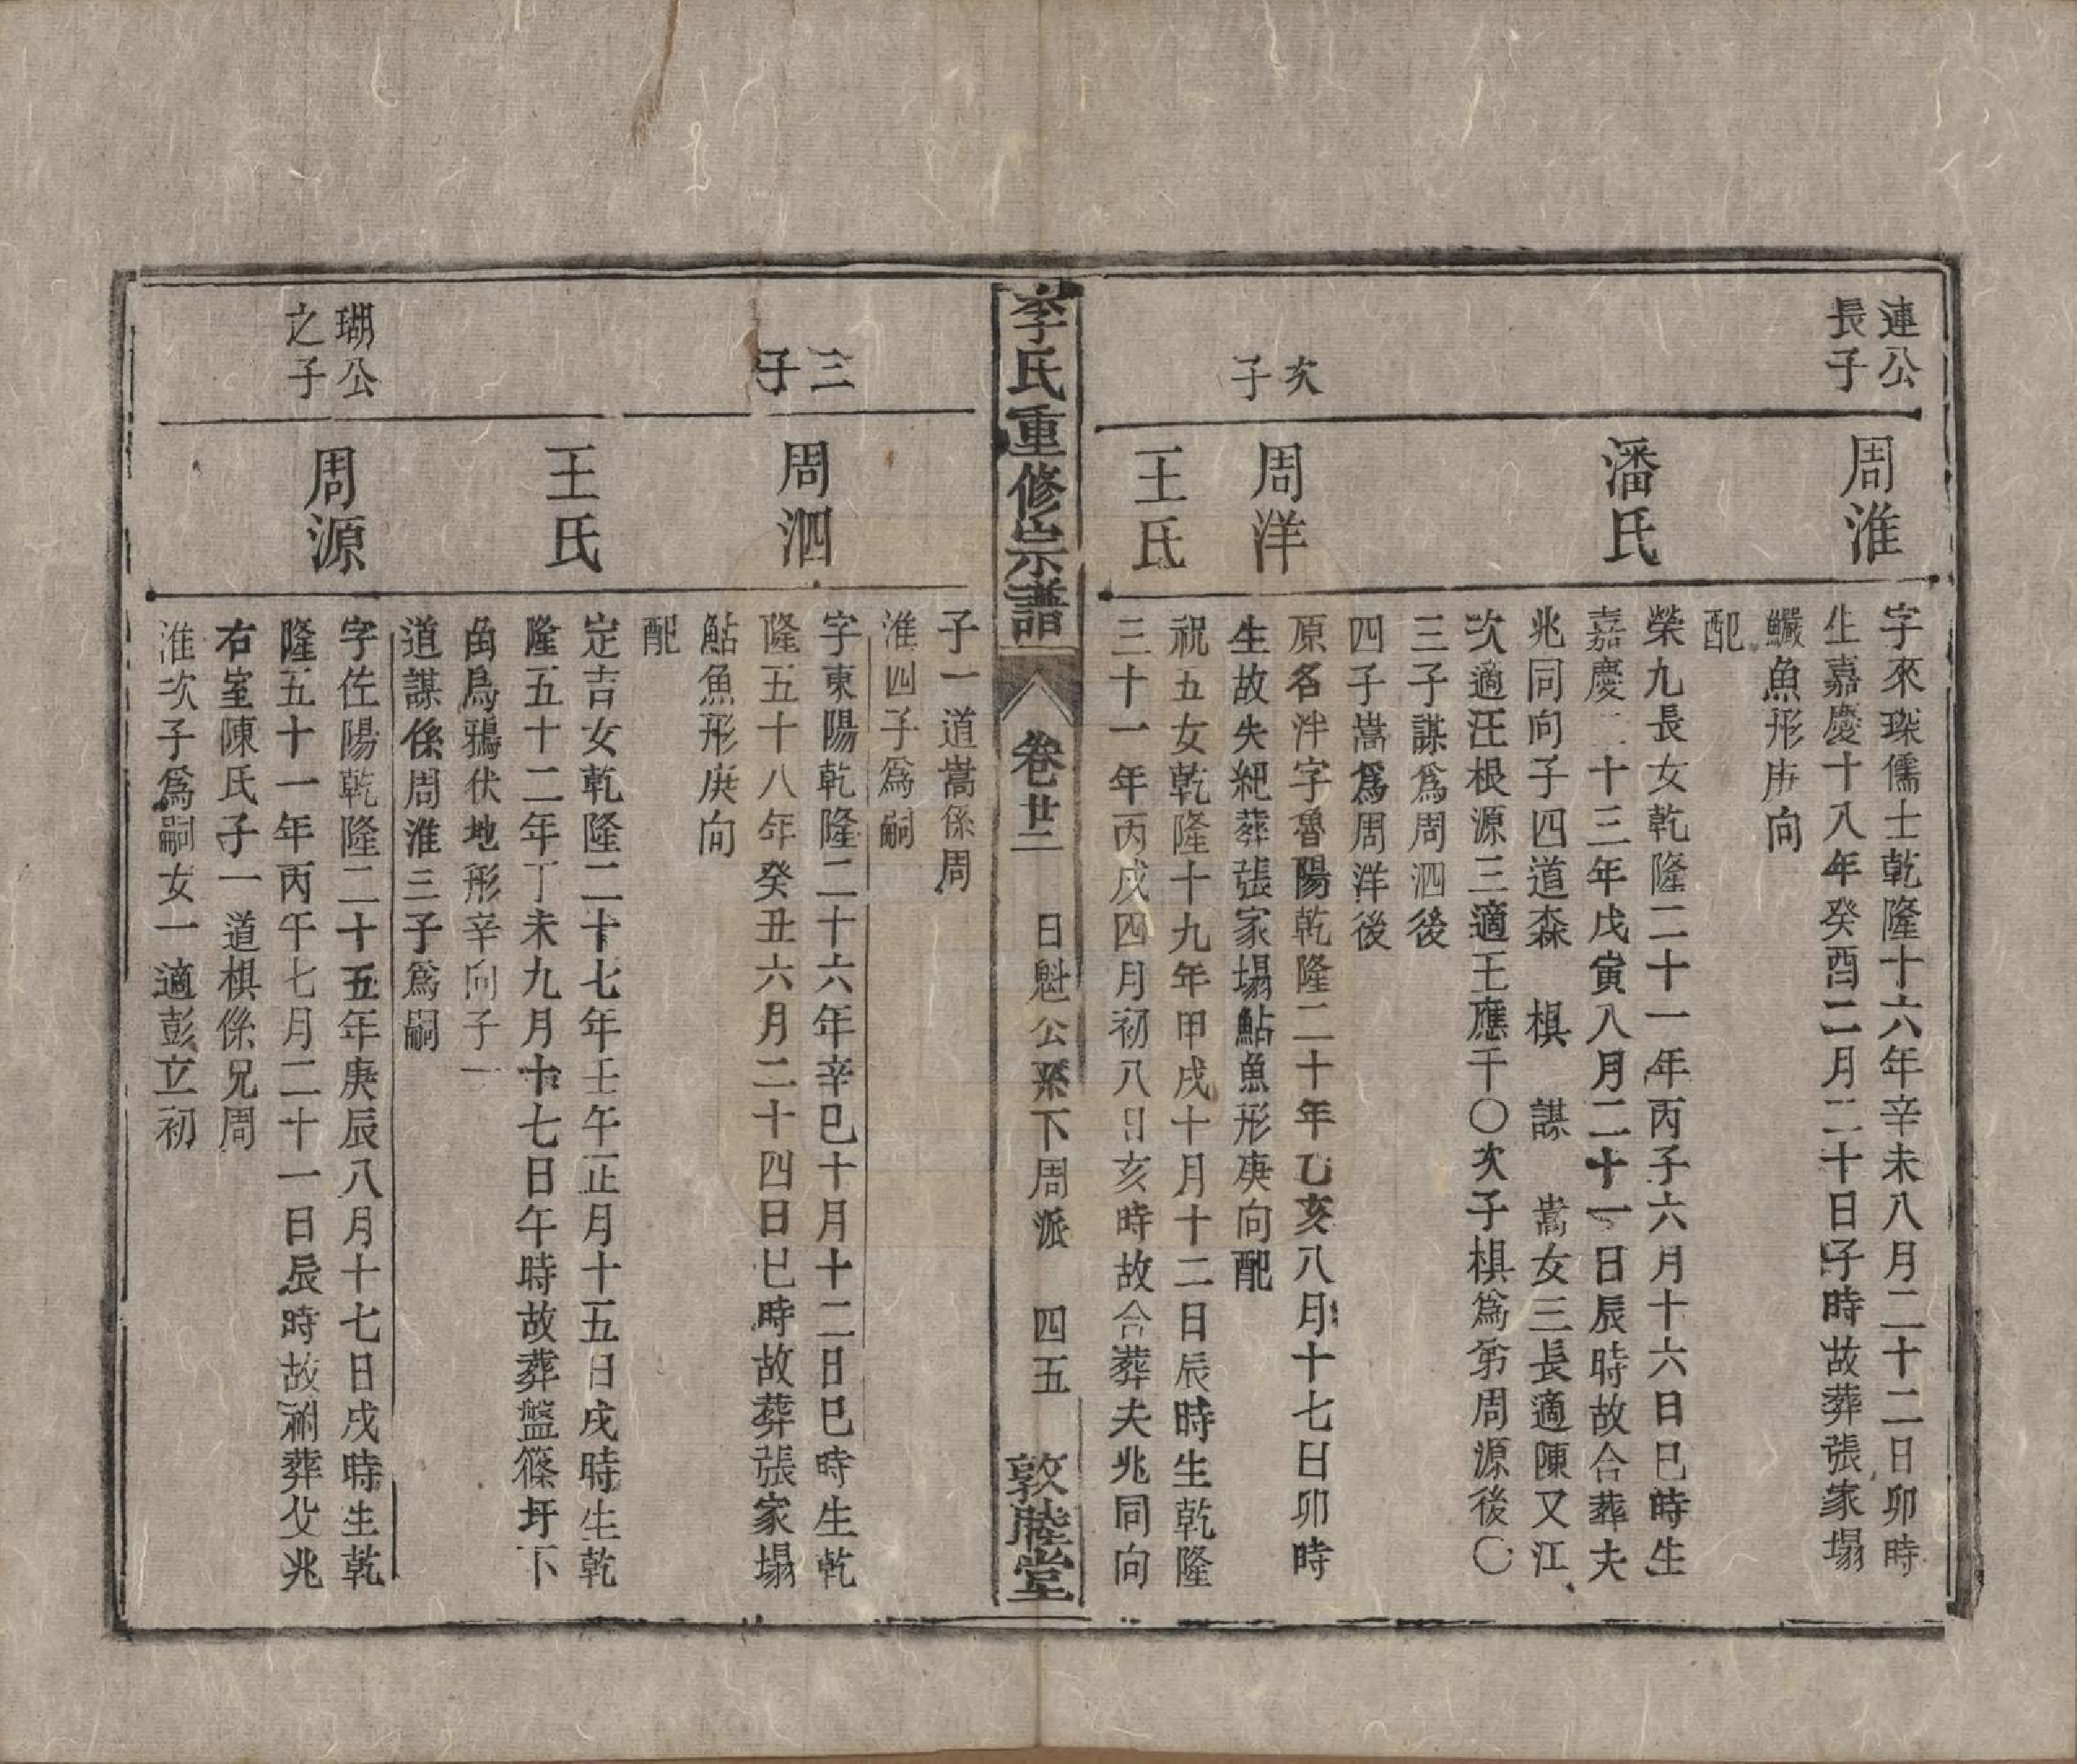 連公
長子
周淮
字來琛儒士乾隆十六年辛未八月二十二日卯時
生嘉慶十八年癸酉二月二十日子時故葬張家塌
鱖魚形庚向
配
潘氏
榮九長女乾隆二十一年丙子六月十六日巳時生
嘉慶二十三年戊寅八月二十一日辰時故合葬夫
兆同向子四道森 棋 謀 嵩女三長適陳又江
次適汪根源三適王應干〇次子棋爲第周源後〇
三子謀爲周泗後
四子嵩爲周洋後
次
子
周洋
原名泮字魯陽乾隆二十年乙亥八月十七日卯時
生故失紀葬張家塌鮎魚形庚向配
王氏
祝五女乾隆十九年甲戌十月十二日辰時生乾隆
三十一年丙戌四月初八日亥時故合葬夫兆同向
李氏重修宗譜
卷廿二 日魁公系下周派 四五
敦睦堂
子一道嵩係周
淮四子爲嗣
三
子
周泗
字東陽乾隆二十六年辛巳十月十二日巳時生乾
隆五十八年癸丑六月二十四日巳時故葬張家塌
鮎魚形庚向
配
王氏
定吉女乾隆二十七年壬午正月十五日戌時生乾
隆五十二年丁未九月十七日午時故葬盤篠圩下
角烏鴉伏地形辛向子一
道謀係周淮三子爲嗣
瑚公
之子
周源
字佐陽乾隆二十五年庚辰八月十七日戌時生乾
隆五十一年丙午七月二十一日辰時故祔葬父兆
右室陳氏子一道棋係兄周
淮次子爲嗣女一適彭立初